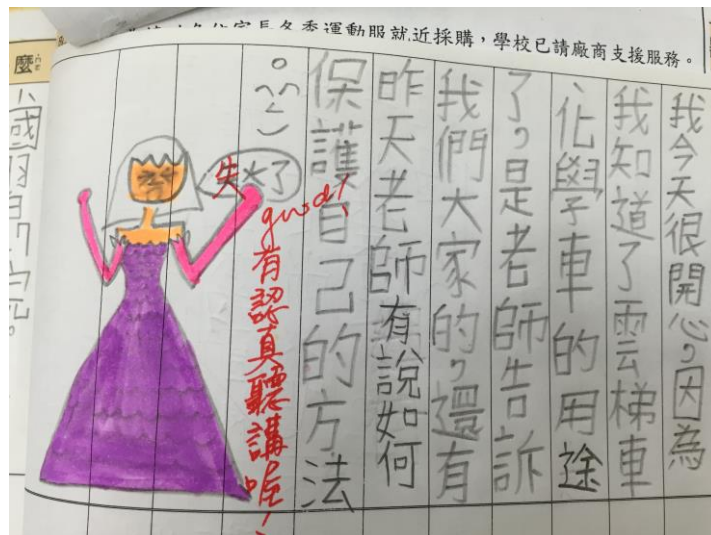 各季運動服就近採購，學校已請廠商支援服務。
我今天很開心，因為
我知道了雲梯車
化學車的用途
了，是老師告訴
我們大家的，還有
昨天老師有說如何
保護自己的方法
。
失火了
good!
有認真聽講喔！
麼